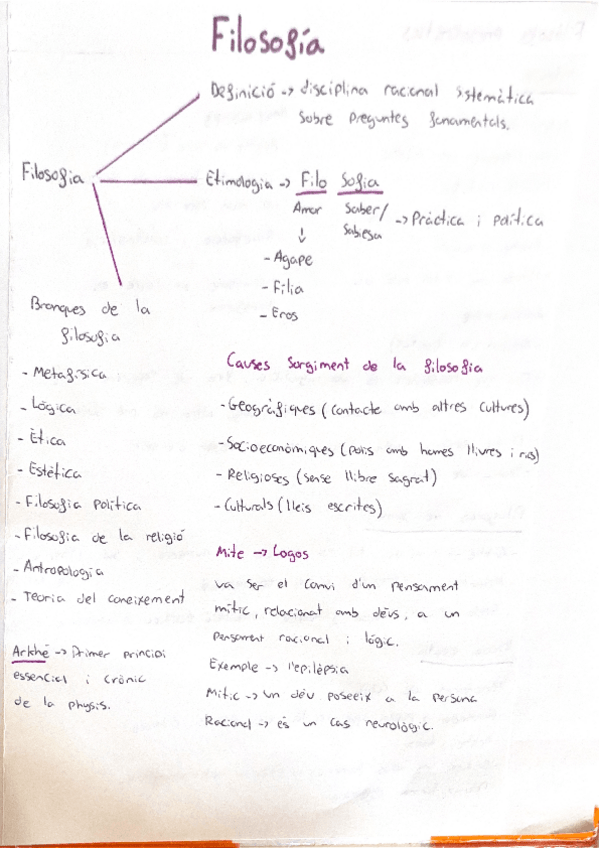 Filosofía
Definició -> disciplina racional sistemàtica
sobre preguntes fonamentals.
Filosofia
Etimologia -> Filo Sofia
Amor
Saber/
Sabiesa
-> Pràctica i política
↓
- Agape
- Fília
- Eros
Branques de la
filosofia
- Metafísica
- Lògica
- Ètica
- Estètica
- Filosofia política
- Filosofia de la religió
- Antropologia
- Teoria del coneixement
Arkhé -> Primer principi
essencial i crònic
de la physis.
Causes Surgiment de la filosofia
- Geogràfiques (contacte amb altres cultures)
- Socioeconòmiques (polis amb homes lliures i rics)
- Religioses (sense llibre sagrat)
- Culturals (lleis escrites)
Mite -> Logos
va ser el canvi d'un pensament
mític, relacionat amb déus, a un
pensament racional i lògic.
Exemple -> l'epilèpsia
Mític -> un déu poseeix a la persona
Racional -> és un cas neurològic.